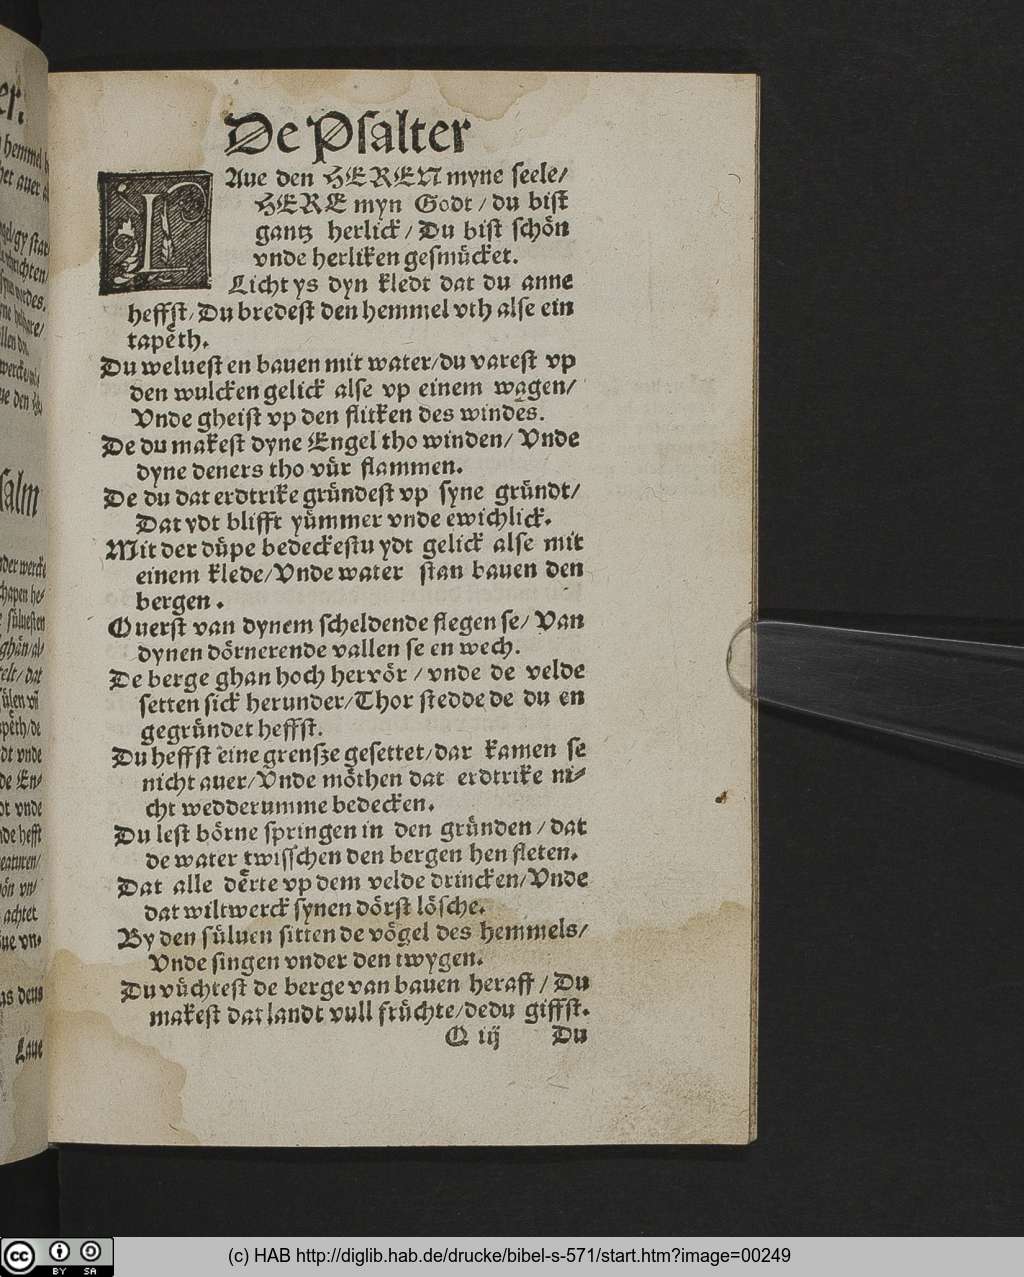 De Psalter
LAue den HEREN myne seele/
HERE myn Godt / du bist
gantz herlick / Du bist schön
vnde herliken gesmücket.
Licht ys dyn kledt dat du anne
heffst/ Du bredest den hemmel vth alse ein
tapeth.
Du weluest en bauen mit water/du varest vp
den wulcken gelick alse vp einem wagen/
Vnde gheist vp den flitken des windes.
De du makest dyne Engel tho winden/ Vnde
dyne deners tho vür flammen.
De du dat erdtrike gründest vp syne gründt/
Dat ydt blifft yümmer vnde ewichlick.
Mit der düpe bedeckestu ydt gelick alse mit
einem klede/Vnde water stan bauen den
bergen.
Ouerst van dynem scheldende flegen se/ Van
dynen dörnerende vallen se en wech.
De berge ghan hoch hervör / vnde de velde
setten sick herunder/Thor stedde de du en
gegründet heffst.
Du heffst eine grensze gesettet/dar kamen se
nicht auer/Vnde möthen dat erdtrike ni-
cht wedderumme bedecken.
Du lest börne springen in den gründen / dat
de water twisschen den bergen hen fleten.
Dat alle derte vp dem velde drincken/Vnde
dat wiltwerck synen dörst lösche.
By den süluen sitten de vögel des hemmels/
Vnde singen vnder den twygen.
Du vüchtest de berge van bauen heraff / Du
makest dat landt vull früchte/dedu giffst.
Q iij Du
(c) HAB http://diglib.hab.de/drucke/bibel-s-571/start.htm?image=00249